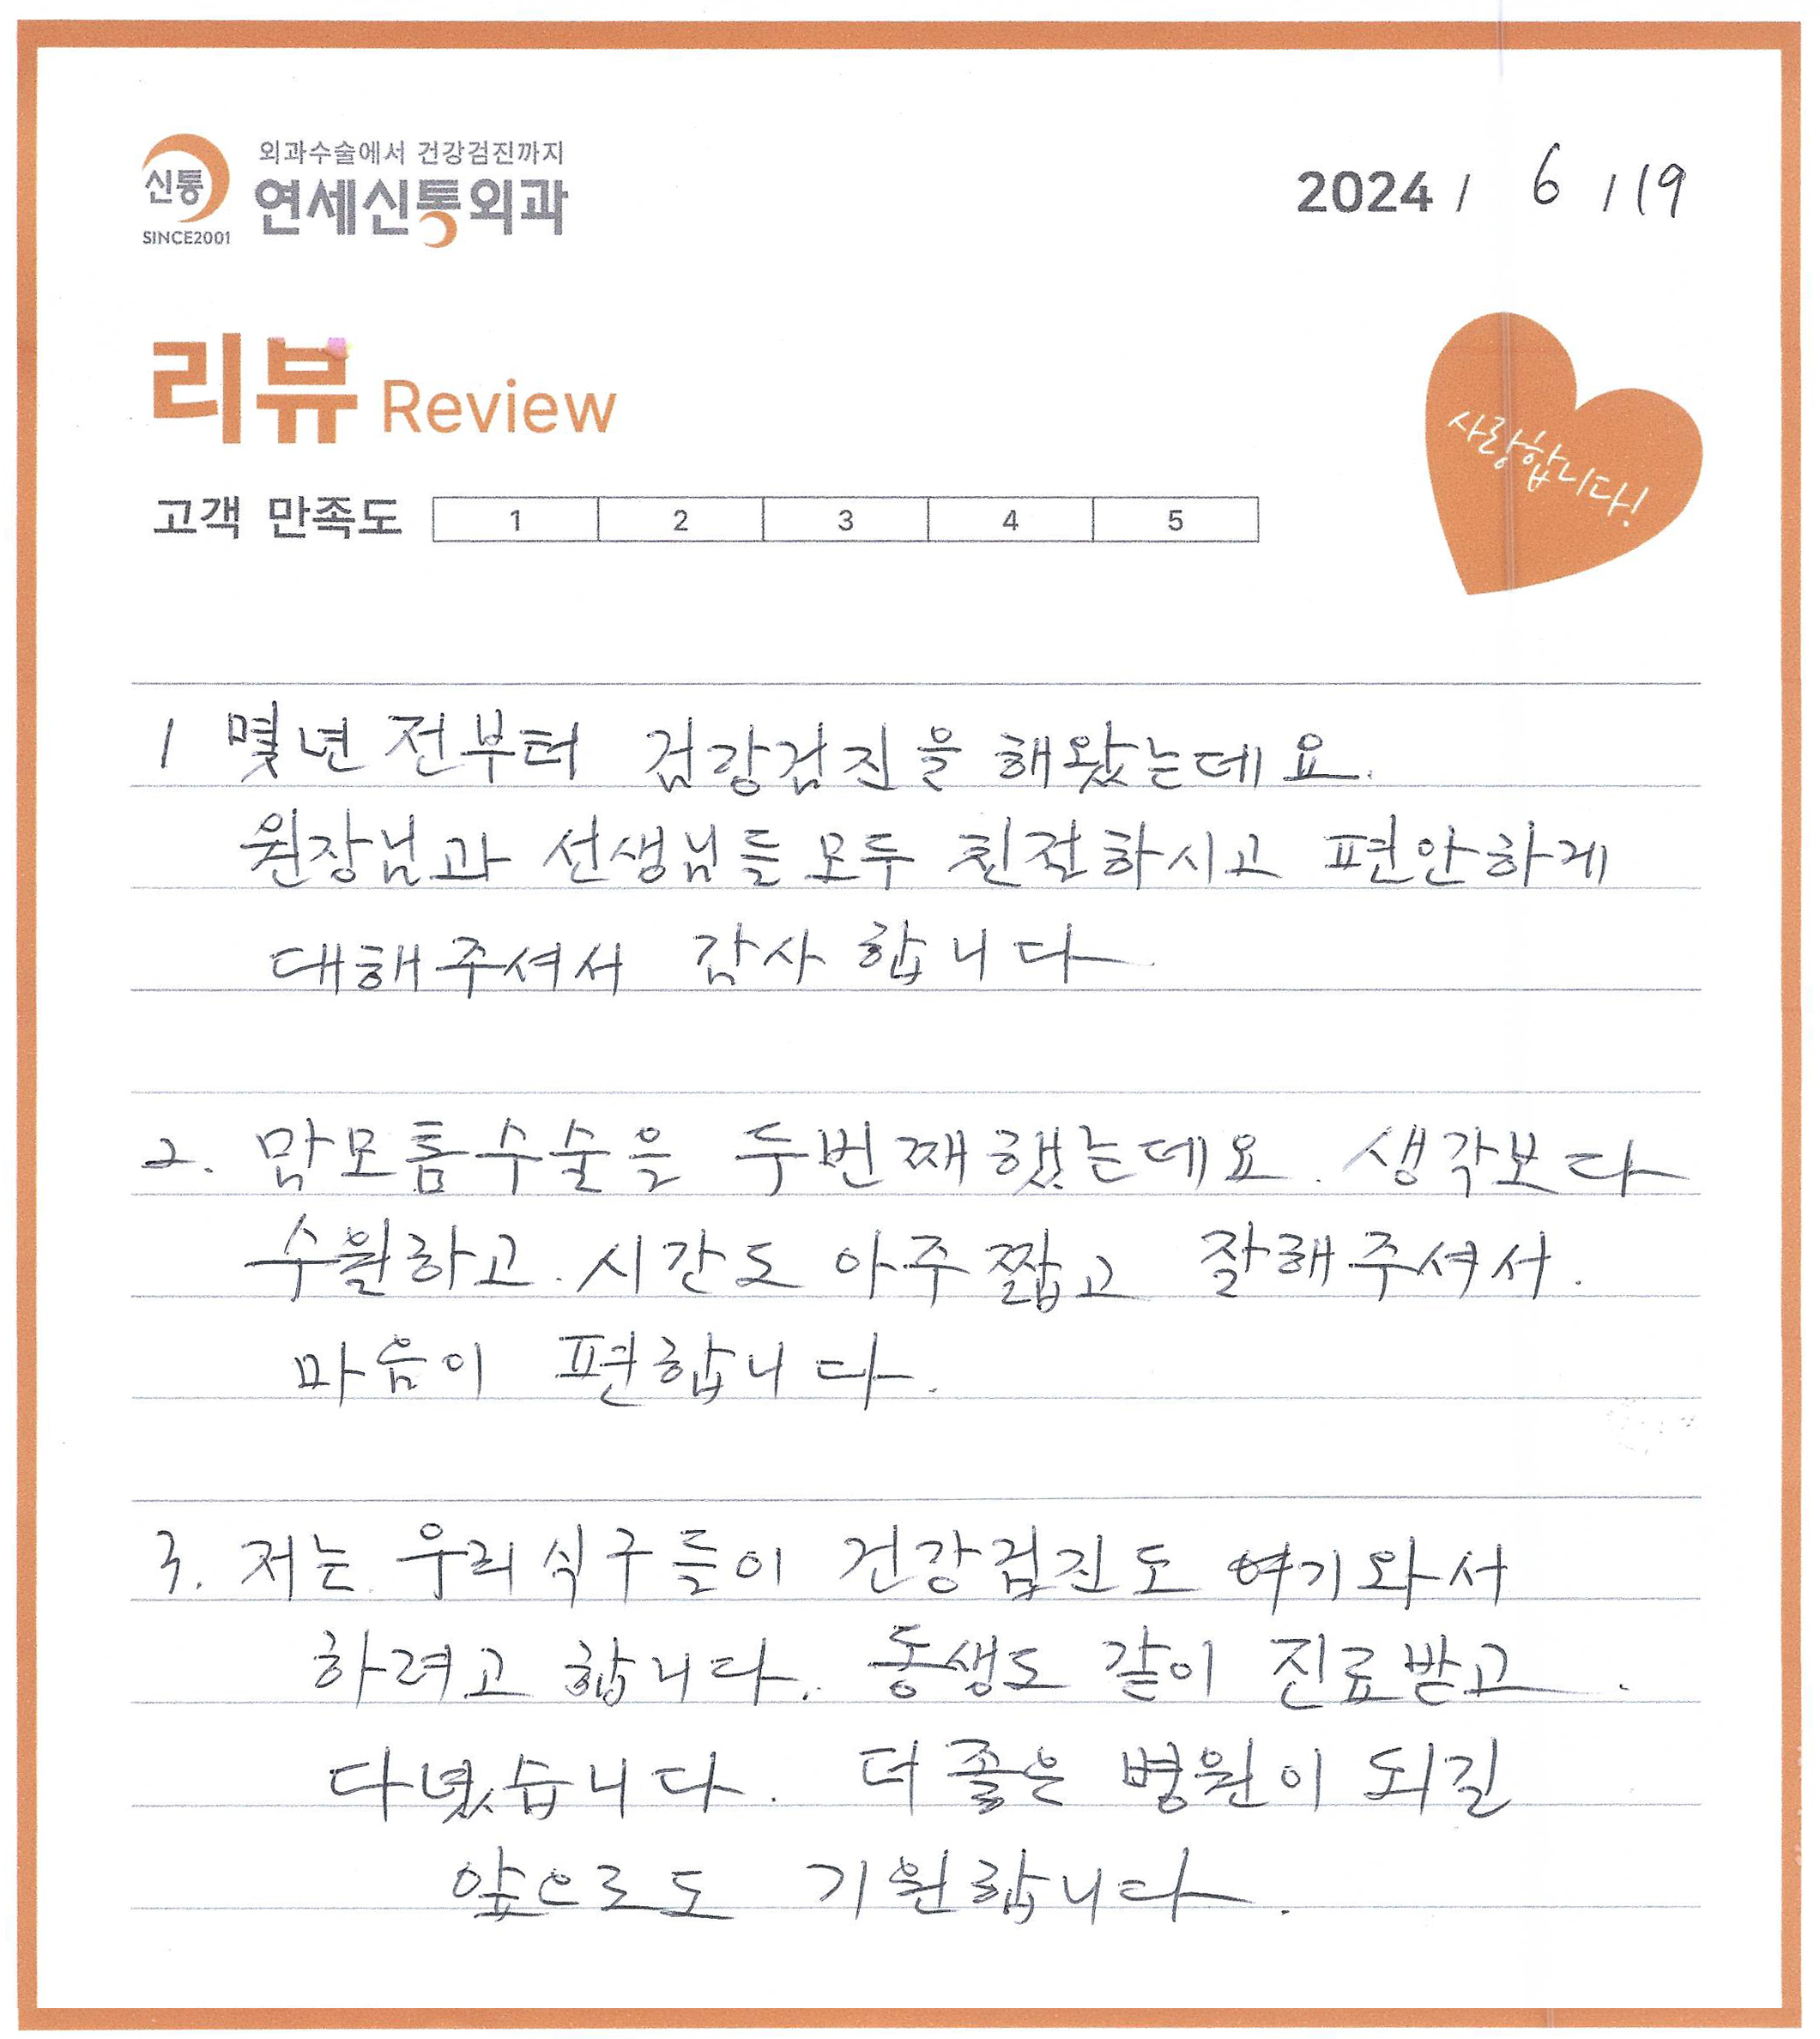 외과수술에서 건강검진까지
신통
연세신통외과
SINCE2001
2024 / 6 / 19
리뷰 Review
사랑합니다!
고객 만족도 1 2 3 4 5
1 몇년 전부터 검강검진을 해왔는데요.
원장님과 선생님들 모두 친절하시고 편안하게
대해주셔서 감사합니다
2. 맘모톰수술을 두번째했는데요. 생각보다
수월하고. 시간도 아주 짧고 잘해주셔서.
마음이 편합니다.
3. 저는 우리식구들이 건강검진도 여기와서
하려고 합니다. 동생도 같이 진료받고.
다녔습니다. 더 좋은 병원이 되길
앞으로도 기원합니다.